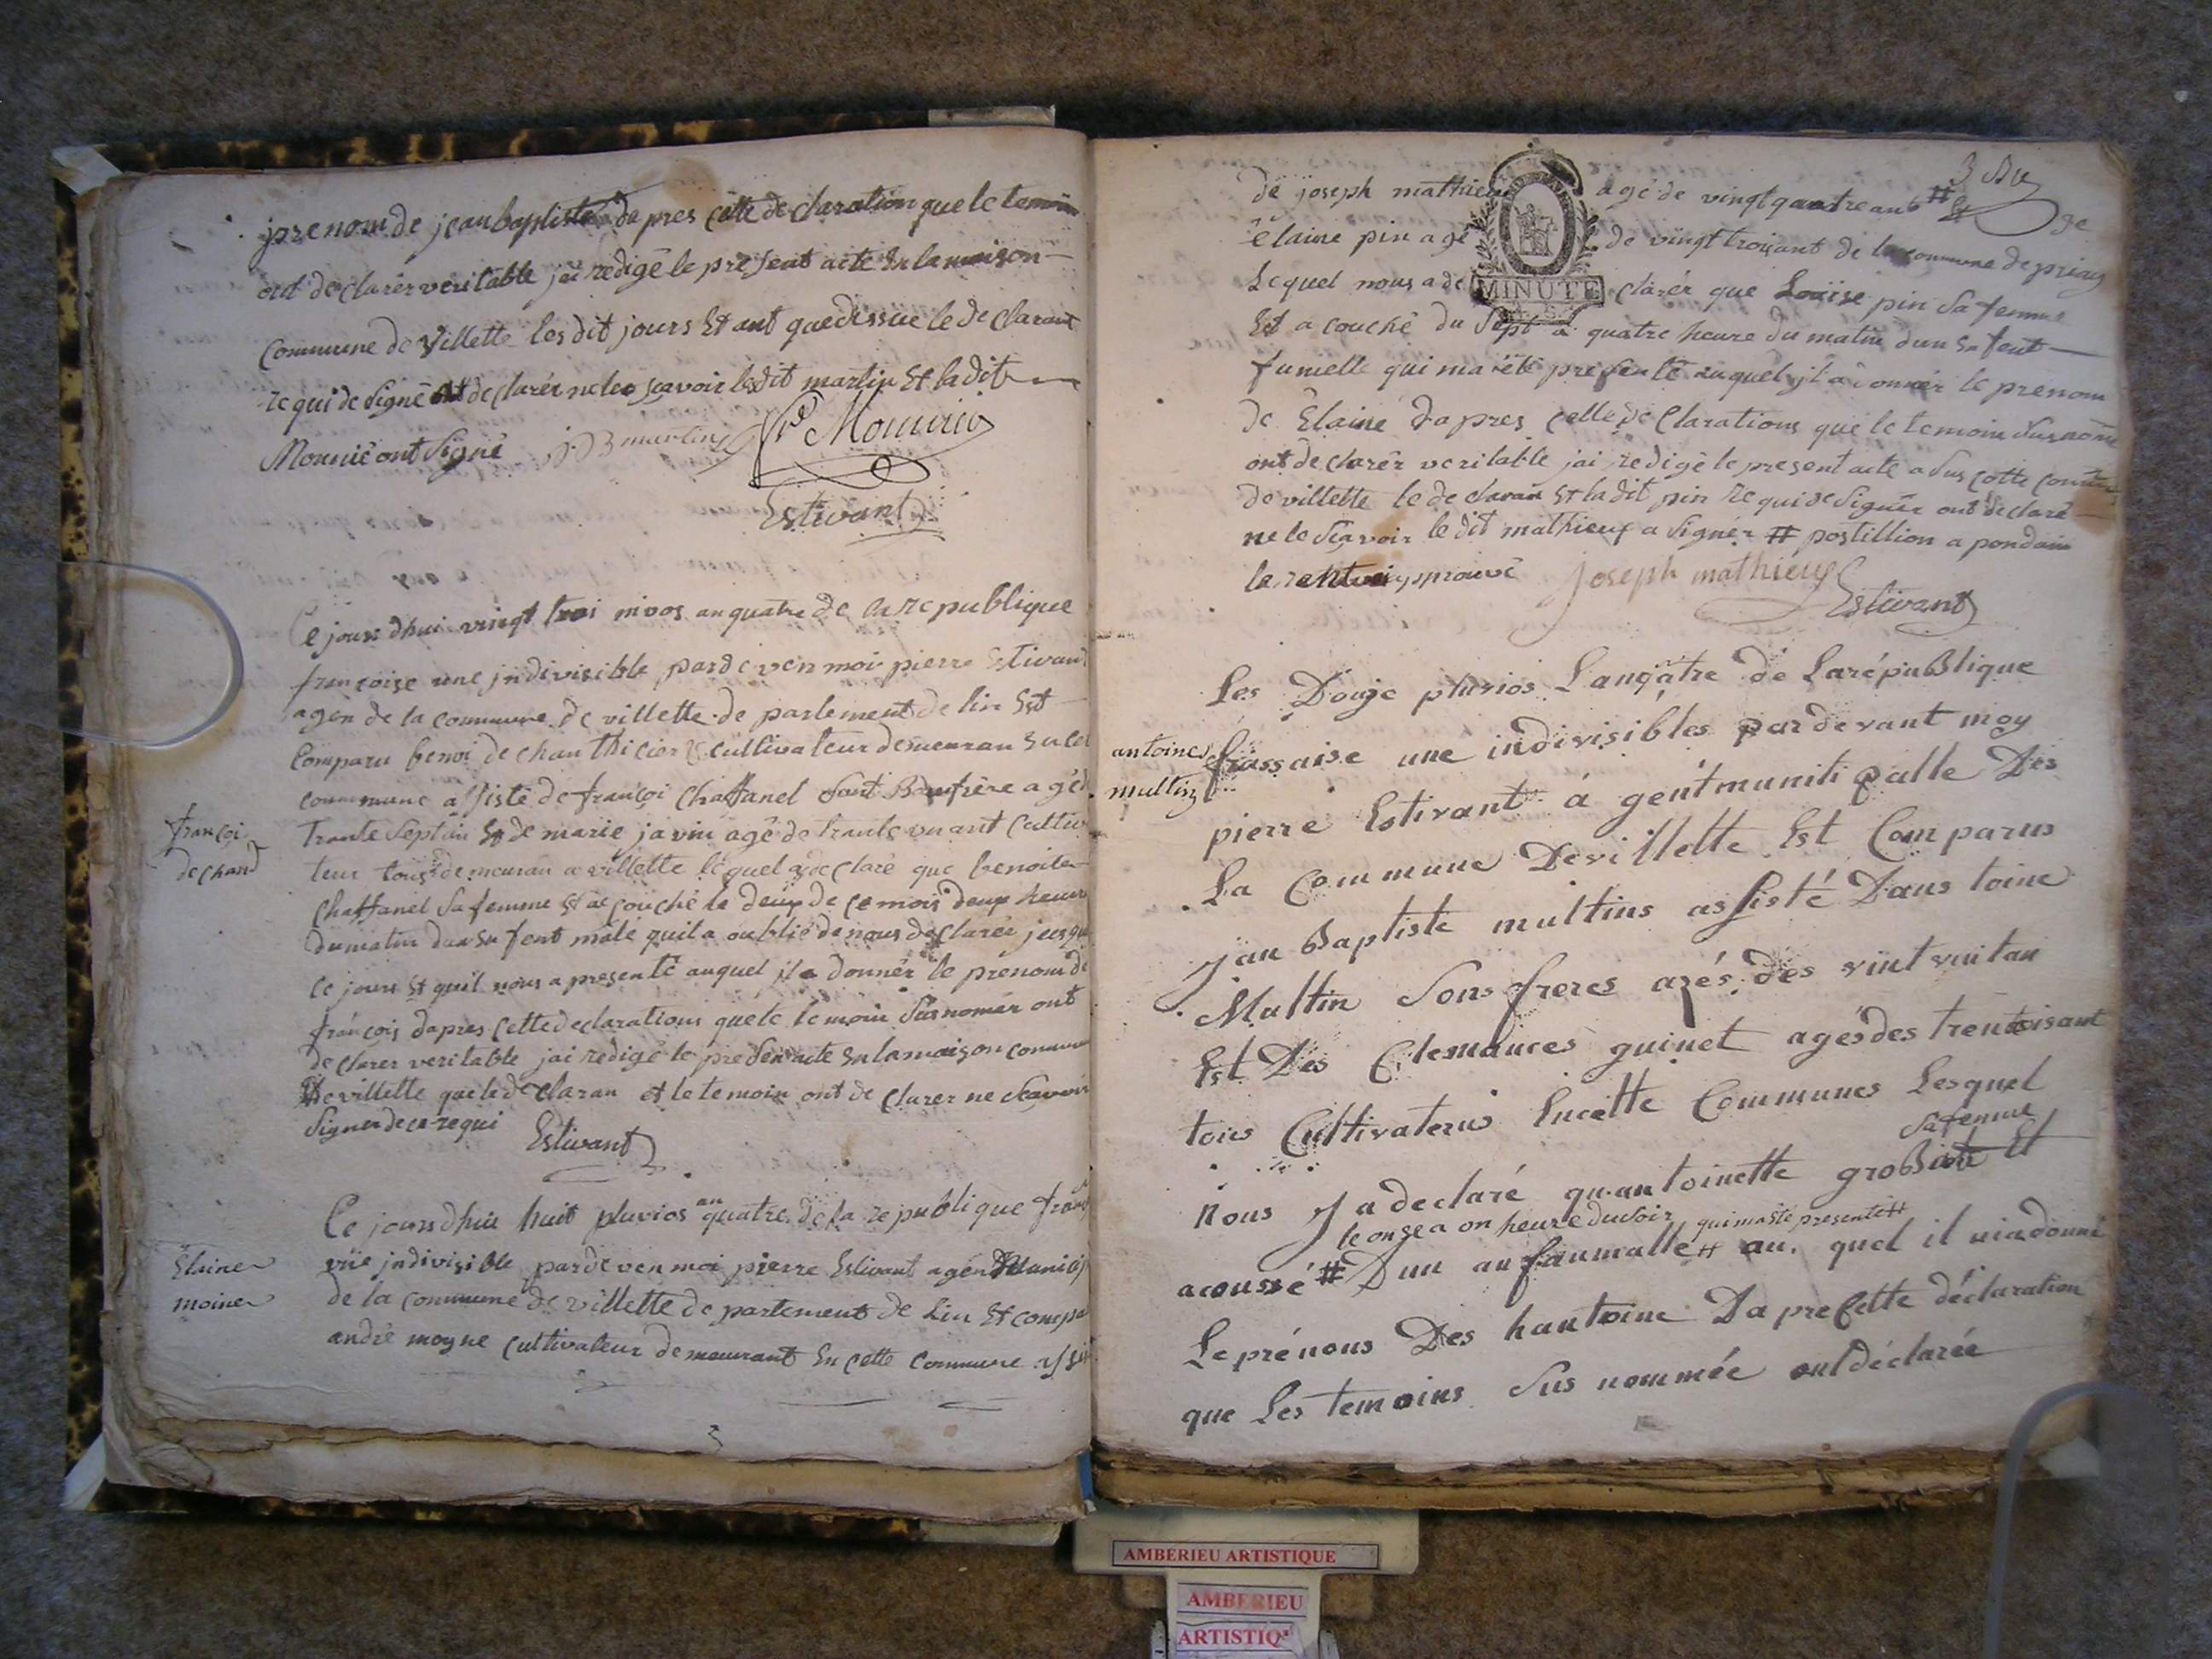 prenom de jean baptiste da pres cette de claration que le temoin
ont declarér veritable jai redigé le present acte en la maison
commune de Villette les dit jours Et ant que dissue le de clarant
re qui de signé de clarér ne le scavoir ledit martin Et la dit
Monnié ont signé J. B martin
Estivant
Ce jours dhui vingt troi nivos an quatre de la republique
françoise une jndivisible parde ven moi pierre Estivant
agen de la commune de villette de partement de lin Est
Comparu benoi de chan cultivateur demeuran en cet
commune assisté de françoi chaffanel Sont Baufrère agé d
françoi
de chand
trante Sept an Et de marie javin agé de trante un ant Cultiva
teur tous demeuran a villette lequel a declaré que benoite
chaffanel sa femme Et acouché le deux de ce mois deux heure
du matin dun en fent male quil a oublié de nous declarér jusqu
ce jours Et quil nous a presenté auquel jl a donnér le prenom de
françois dapres cette declarations que le temoin Susnomér ont
declarer veritable jai redigé le present acte en la maison commune
de villette que le de claran et le temoin ont de clarer ne scavoir
Signer de ce requi Estivant
Ce jours dhui huit pluvios an quatre de la republique franç
Elaine
moine
une jndivisible parde ven moi pierre Estivant agen
de la commune de villette de partement de Lin Et compa
andré moyne cultivateur demeurant en cette commune assi
3
de joseph mathieu agé de vingt quatre ans # Et de
élaine pin agé de vingt troi ant de la commune de priay
Lequel nous a de MINUTE clarér que Louise pin sa femme
Est a couché du Sept a quatre heure du matin dun en fent
fumelle qui ma été presenté auquel jl a donnér le prenom
de Élaine dapres cette de clarations que le temoin susnomé
ont declarér veritable jai redigé le present acte a
de villette le de claran Et la dit pin re qui de signér ont declaré
ne le Sçavoir le dit mathieux a signer # postillion a pondain
Joseph mathieux
Estivant
Les Douze pluvios Lanqatre de Larépublique
antoine
multin
frassaise une indivisibles pardevant moy
pierre Estivant á gent munitiqalle Des
La Commune De villette Est Comparus
jan Baptiste multins assisté Dans toine
Multin Sons freres azés des vint vuitan
Est Des Clemances guinet agés des trentoisant
tous Cultivaterus Encette Communes Lesquel
nous J a declaré quantoinette sa femme Et
le onse a on heure du soir qui maété presenté #
acoussé # Dun anfanmalle # au quel il uiadonné
Le prénous Des hantoine Da pre Cette déclaration
que Les temoins Sus nommée ont déclarée
AMBERIEU ARTISTIQUE
AMBERIEU
ARTISTIQ